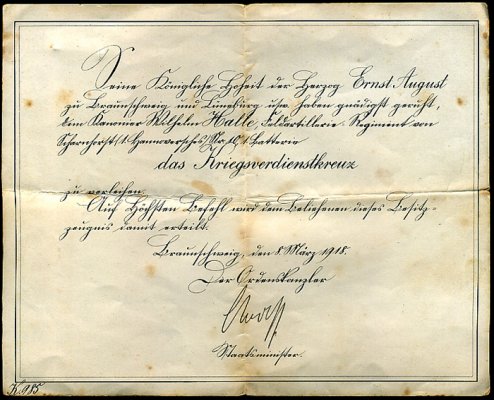 Seine Königliche Hoheit der Herzog Ernst August
zu Braunschweig und Lüneburg usw. haben gnädigst geruht,
dem Kanonier Wilhelm Halle, Feldartillerie-Regiment von
Scharnhorst (1. Hannoversches) Nr. 10, 1. Batterie
das Kriegsverdienstkreuz
zu verleihen.
Auf Höchsten Befehl wird dem Beliehenen dieses Besitz-
zeugnis damit erteilt.
Braunschweig, den 8. März 1918.
Der Ordenskanzler
Staatsminister.
K. 985